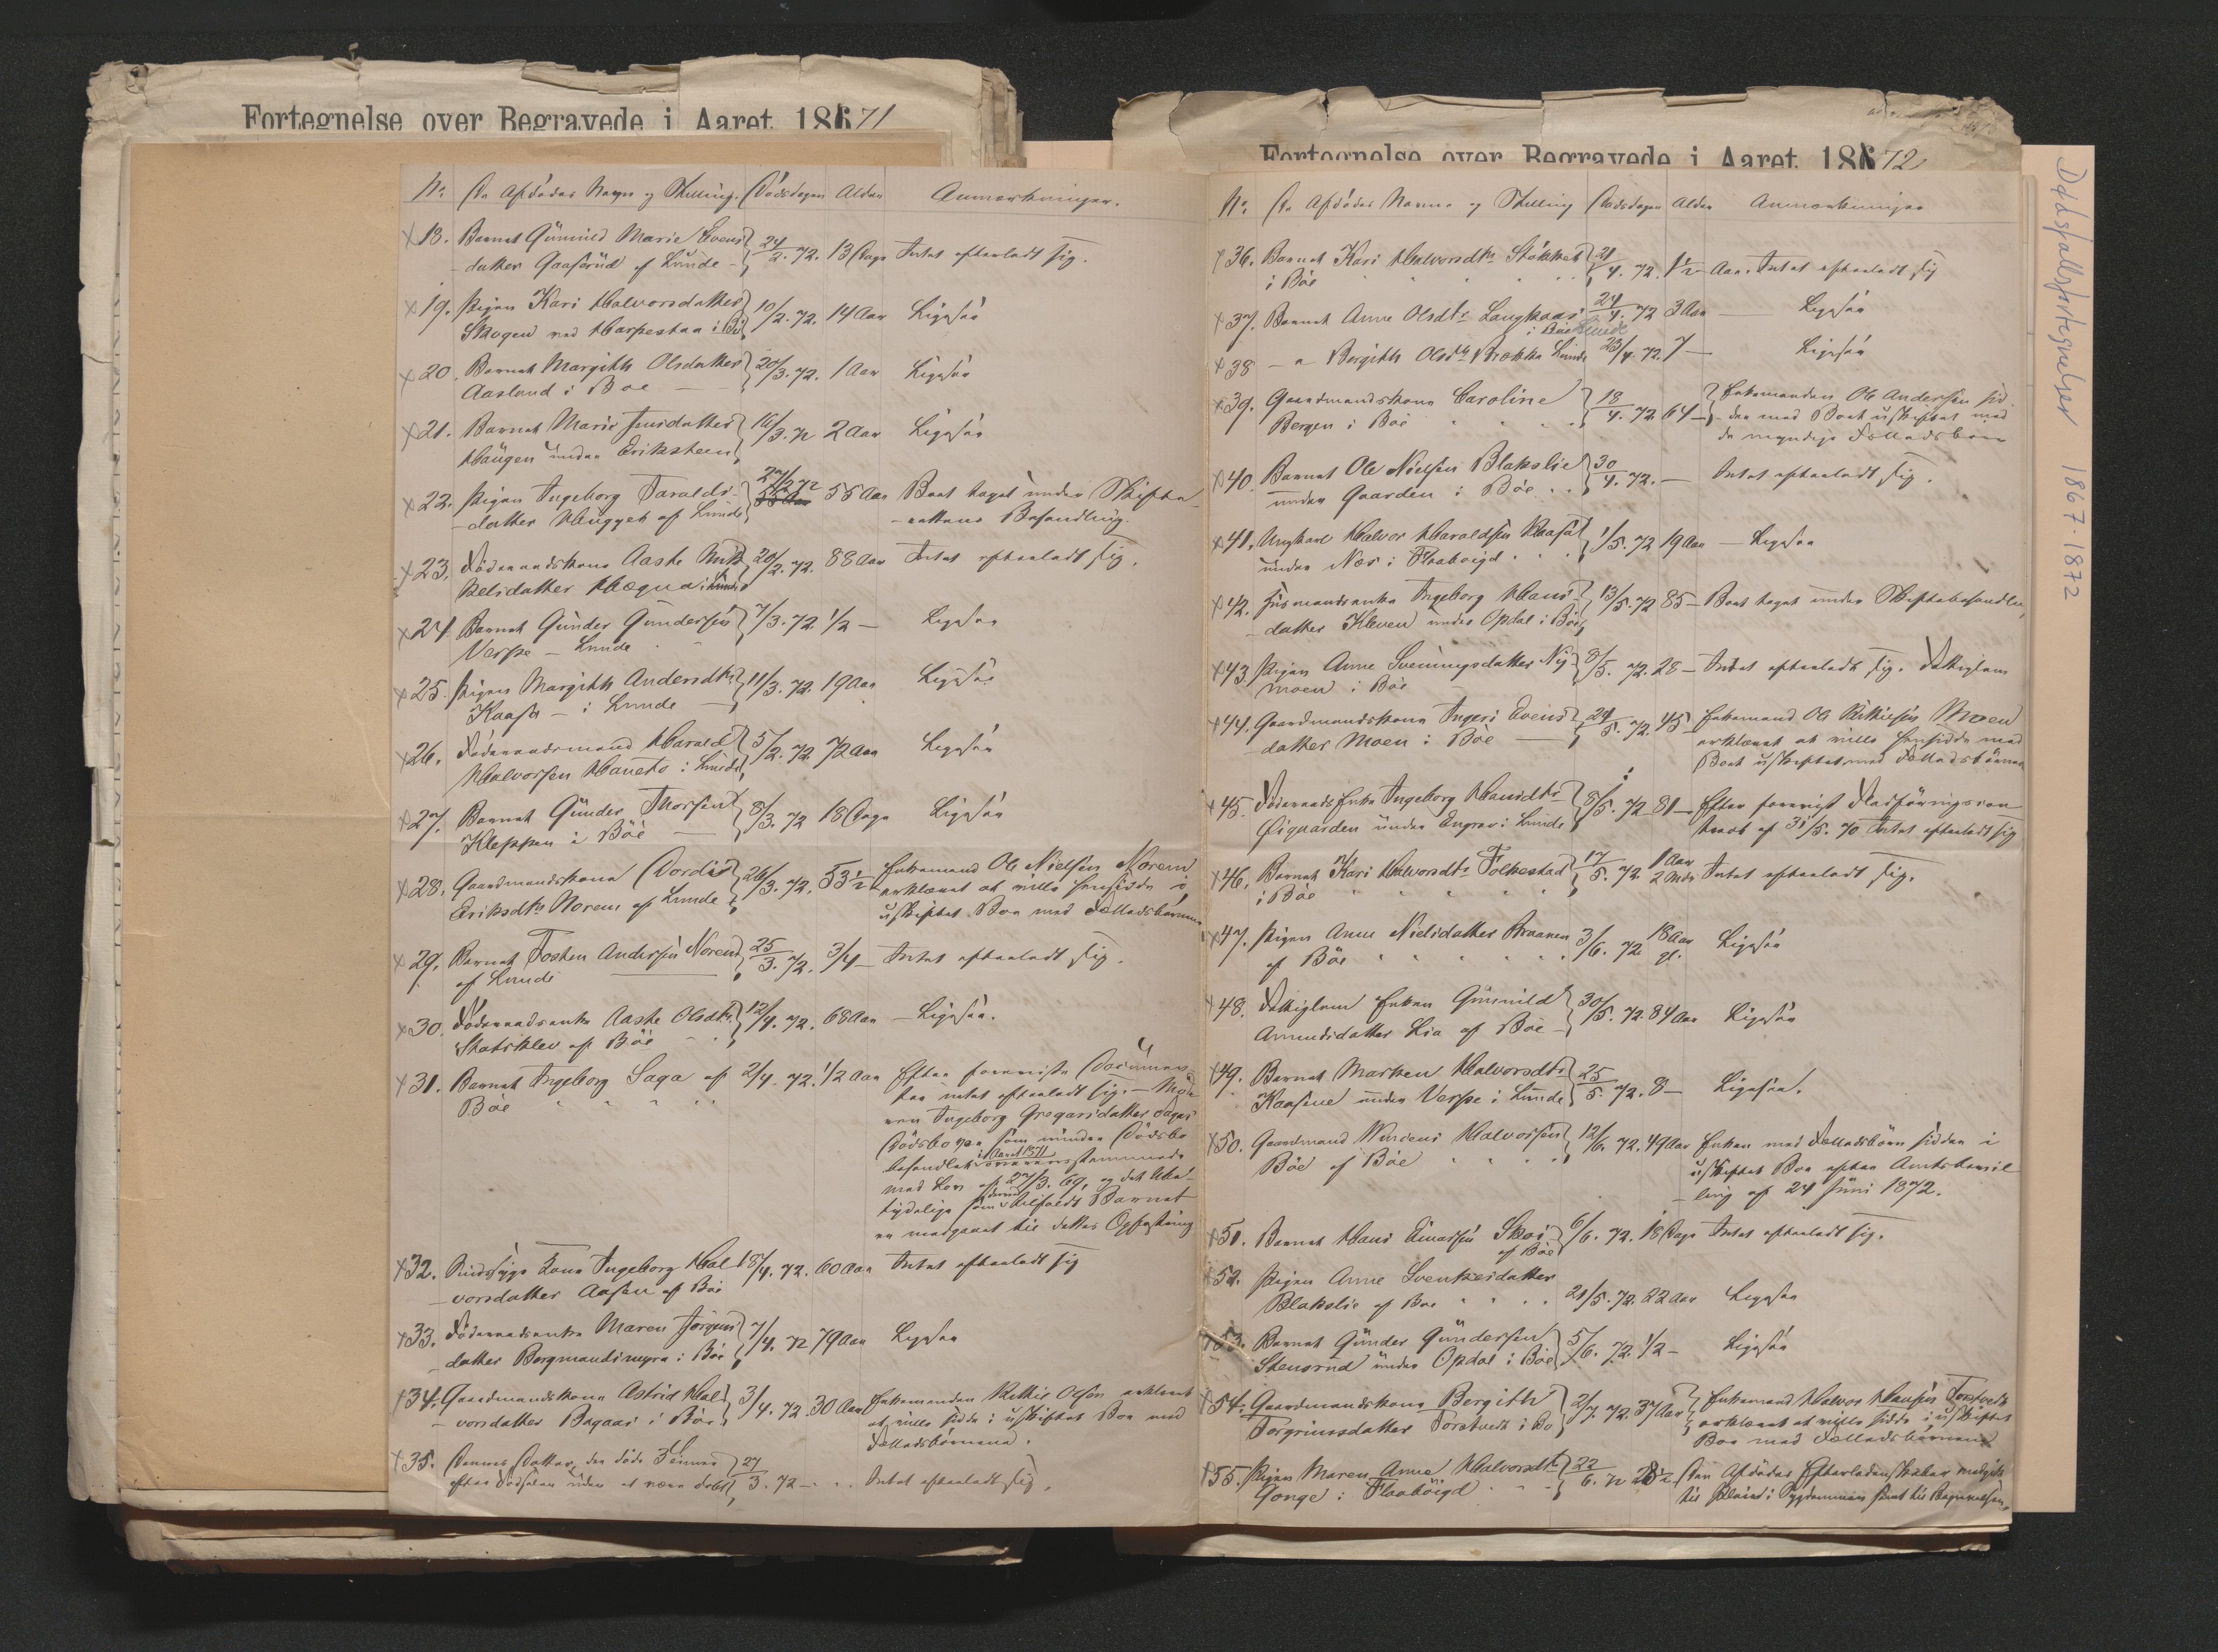 Fortegnelse over Begravede i Aaret 1871
No. De Afdødes Navn og Stilling. Dødsdagen Alder Anmærkninger.
18. Barnet Gunnild Marie Evens-
datter Gaaserud af Lunde 24/2. 72. 13 Dage Intet efterladt sig.
19. Pigen Kari Halvorsdatter
Skogen ved Harpestaa i Bø 10/2. 72. 14 Aar Ligesaa
20. Barnet Margith Olsdatter
Aasland i Bøe 20/3. 72. 1 Aar Ligesaa
21. Barnet Marie Jensdatter
Haugen under Eriksteen 16/3. 72 2 Aar Ligesaa
22. Pigen Ingeborg Taralds-
datter Heugget af Lunde 27/2 72 55 Aar Boet taget under Skifte-
rettens Behandling.
23. Føderaadskone Aaste
Kelsdatter Hægna i Lunde 20/2. 72. 88 Aar Intet efterladt sig.
24. Barnet Gunder Gundersen
Verpe - Lunde 7/3. 72 1/2 — Ligesaa
25. Pigen Margith Andersdtr.
Kaasa - i Lunde 11/3. 72. 19 Aar Ligesaa
26. Føderaadsmand Harald
Halvorsen Haneto i Lunde 5/2. 72. 72 Aar Ligesaa
27. Barnet Gunder Thorsen
Kleppen i Bøe 8/3. 72 18 Dage Ligesaa
28. Gaardmandskone Dordie
Eriksdtr. Norem af Lunde 26/3. 72. 53 1/2 Enkemand Ole Nielsen Norem
erklæret at ville hensidde i
uskiftet Boe med Fællesbørnene
29. Barnet Tosten Andersen Norem
af Lunde 25/3. 72. 3/4 — Intet efterladt sig.
30. Føderaadsenke Aaste Olsdtr.
Skatsklev af Bøe 12/4. 72. 68 Aar — Ligesaa.
31. Barnet Ingeborg Saga af
Bøe 2/4. 72. 1/2 Aar Efter foreviste Documen-
ter intet efterladt sig. — Mode-
ren Ingeborg Gregarsdatter Sagas
Dødsbo som under Dødsbo
behandlet i Aaret 1871 overensstemmende
med Lov af 27/3. 69, og det
som derved tilfaldt Barnet
er medgaaet til dettes Opfostring
32. Sindssyge Kone Ingeborg Hal-
vorsdatter Aasen af Bøe 18/4. 72. 60 Aar Intet efterladt sig
33. Føderaadsenke Maren Jørgens-
datter Borgmandsmyra i Bøe 7/4. 72 79 Aar Ligesaa
34. Gaardmandskone Astrid Hal-
vorsdatter Bagaas i Bøe 3/4. 72. 30 Aar Enkemanden Kittil Olsen erklæret
at ville sidde i uskiftet Boe med
Fællesbørnene.
35. Dennes Datter, der døde 3 Timer
efter Fødselen uden at være døbt 27/3. 72 — Intet efterladt sig.
Fortegnelse over Begravede i Aaret 1872
No. De Afdødes Navne og Stilling Dødsdagen Alder Anmærkninger
36. Barnet Kari Halvorsdtr. Stokket
i Bøe 21/4. 72. 1 1/2 Aar. Intet efterladt sig
37. Barnet Anne Olsdtr. Langkaas
i Bøe Lunde 24/4. 72 3 Aar — Ligesaa
38 — " Bergith Olsdtr Brækka Lunde 23/4. 72. 7 — Ligesaa
39. Gaardmandskone Caroline
Bergen i Bøe 18/4. 72 64 — Enkemanden Ole Andersen sid-
der med Boet uskiftet med
de myndige Fællesbørn
40. Barnet Ole Nielsen Blakslie
under Gaarden i Bøe 30/4. 72. — Intet efterladt sig.
41. Ungkarl Halvor Haraldsen Kaasa
under Næs i Flaabygd 1/5. 72 19 Aar — Ligesaa
42. Husmandsenke Ingeborg Hans-
datter Kleven under Opdal i Bøe 13/5. 72 85 — Boet taget under Skiftebehandl.
43. Pigen Anne Sveinungsdatter Ny-
moen i Bøe 8/5. 72. 28 — Intet efterladt sig. Fattiglem
44. Gaardmandskone Ingeri Evens-
datter Moen i Bøe 24/5. 72. 45 — Enkemand Ole Kittilsen Moen
erklæret at ville hensidde med
Boet uskiftet med Fællesbørnene
45. Føderaadsenke Ingeborg Hansdtr.
Øigaarden under Engrav i Lunde 8/5. 72 81 — Efter forevist Fledføringscon-
tract af 31/5. 70 Intet efterladt sig
46. Barnet Kari Halvorsdtr. Folkestad
i Bøe 17/5. 72. 1 Aar 2 Mdr Intet efterladt sig.
47. Pigen Anne Nielsdatter Braanen
af Bøe 3/6. 72 18 Aar gl. Ligesaa
48. Fattiglem Enken Gunnild
Amundsdatter Lia af Bøe 30/5. 72. 84 Aar Ligesaa
49. Barnet Marken Halvorsdtr.
Kaasene under Verpe i Lunde 25/5. 72. 8 — Ligesaa.
50. Gaardmand Halvorsen
Bøe af Bøe 12/6. 72. 49 Aar Enken med Fællesbørn sidder i
uskiftet Boe efter Amtsbevil-
ling af 24 Juni 1872.
51. Barnet Hans Einarsen Skoe
af Bøe 6/6. 72. 18 Dage Intet efterladt sig.
52. Pigen Anne Svenkesdatter
Blakslie af Bøe 21/5. 72. 22 Aar Ligesaa
53. Barnet Gunder Gundersen
Stensrud under Opdal i Bøe 5/6. 72. 1/2 — Ligesaa
54. Gaardmandskone Bergith
Torgrimsdatter Forstvedt i Bø 2/7. 72. 37 Aar Enkemand Halvor Hansen Forstvedt
erklæret at ville sidde i uskiftet
Boe med Fællesbørnene
55. Pigen Maren Anne Halvorsdtr
Gonge i Flaabygd 22/6. 72 Den Afdødes Efterladenskaber medgik
til Pleie i Sygdommen samt til Begravelsen.
Dødsfallsfortegnelser 1867-1872